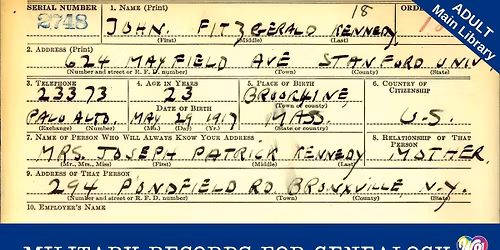 SERIAL NUMBER 1. NAME (Print) ORDER
2748 JOHN. FITZGERALD KENNEDY 18
(First) (Middle) (Last)
ADULT
Main Library
2. ADDRESS (Print)
624 MAYFIELD AVE STANFORD UNIV
(Number and street or R. F. D. number) (Town) (County) (State)
3. TELEPHONE 4. AGE IN YEARS 5. PLACE OF BIRTH 6. COUNTRY OF
CITIZENSHIP
23373 23 BROOKLINE,
DATE OF BIRTH (Town or county)
PALO ALTO. MAY 29 1917 MASS. U.S.
(Exchange) (Number) (Mo.) (Day) (Yr.) (State or country)
7. NAME OF PERSON WHO WILL ALWAYS KNOW YOUR ADDRESS 8. RELATIONSHIP OF THAT
PERSON
MRS. JOSEPH PATRICK KENNEDY MOTHER,
(Mr., Mrs., Miss) (First) (Middle) (Last)
9. ADDRESS OF THAT PERSON
294 PONDFIELD RD. BRONXVILLE, N.Y.
(Number and street or R. F. D. number) (Town) (County) (State)
10. EMPLOYER'S NAME
MILITARY RECORDS FOR GENEALOGY